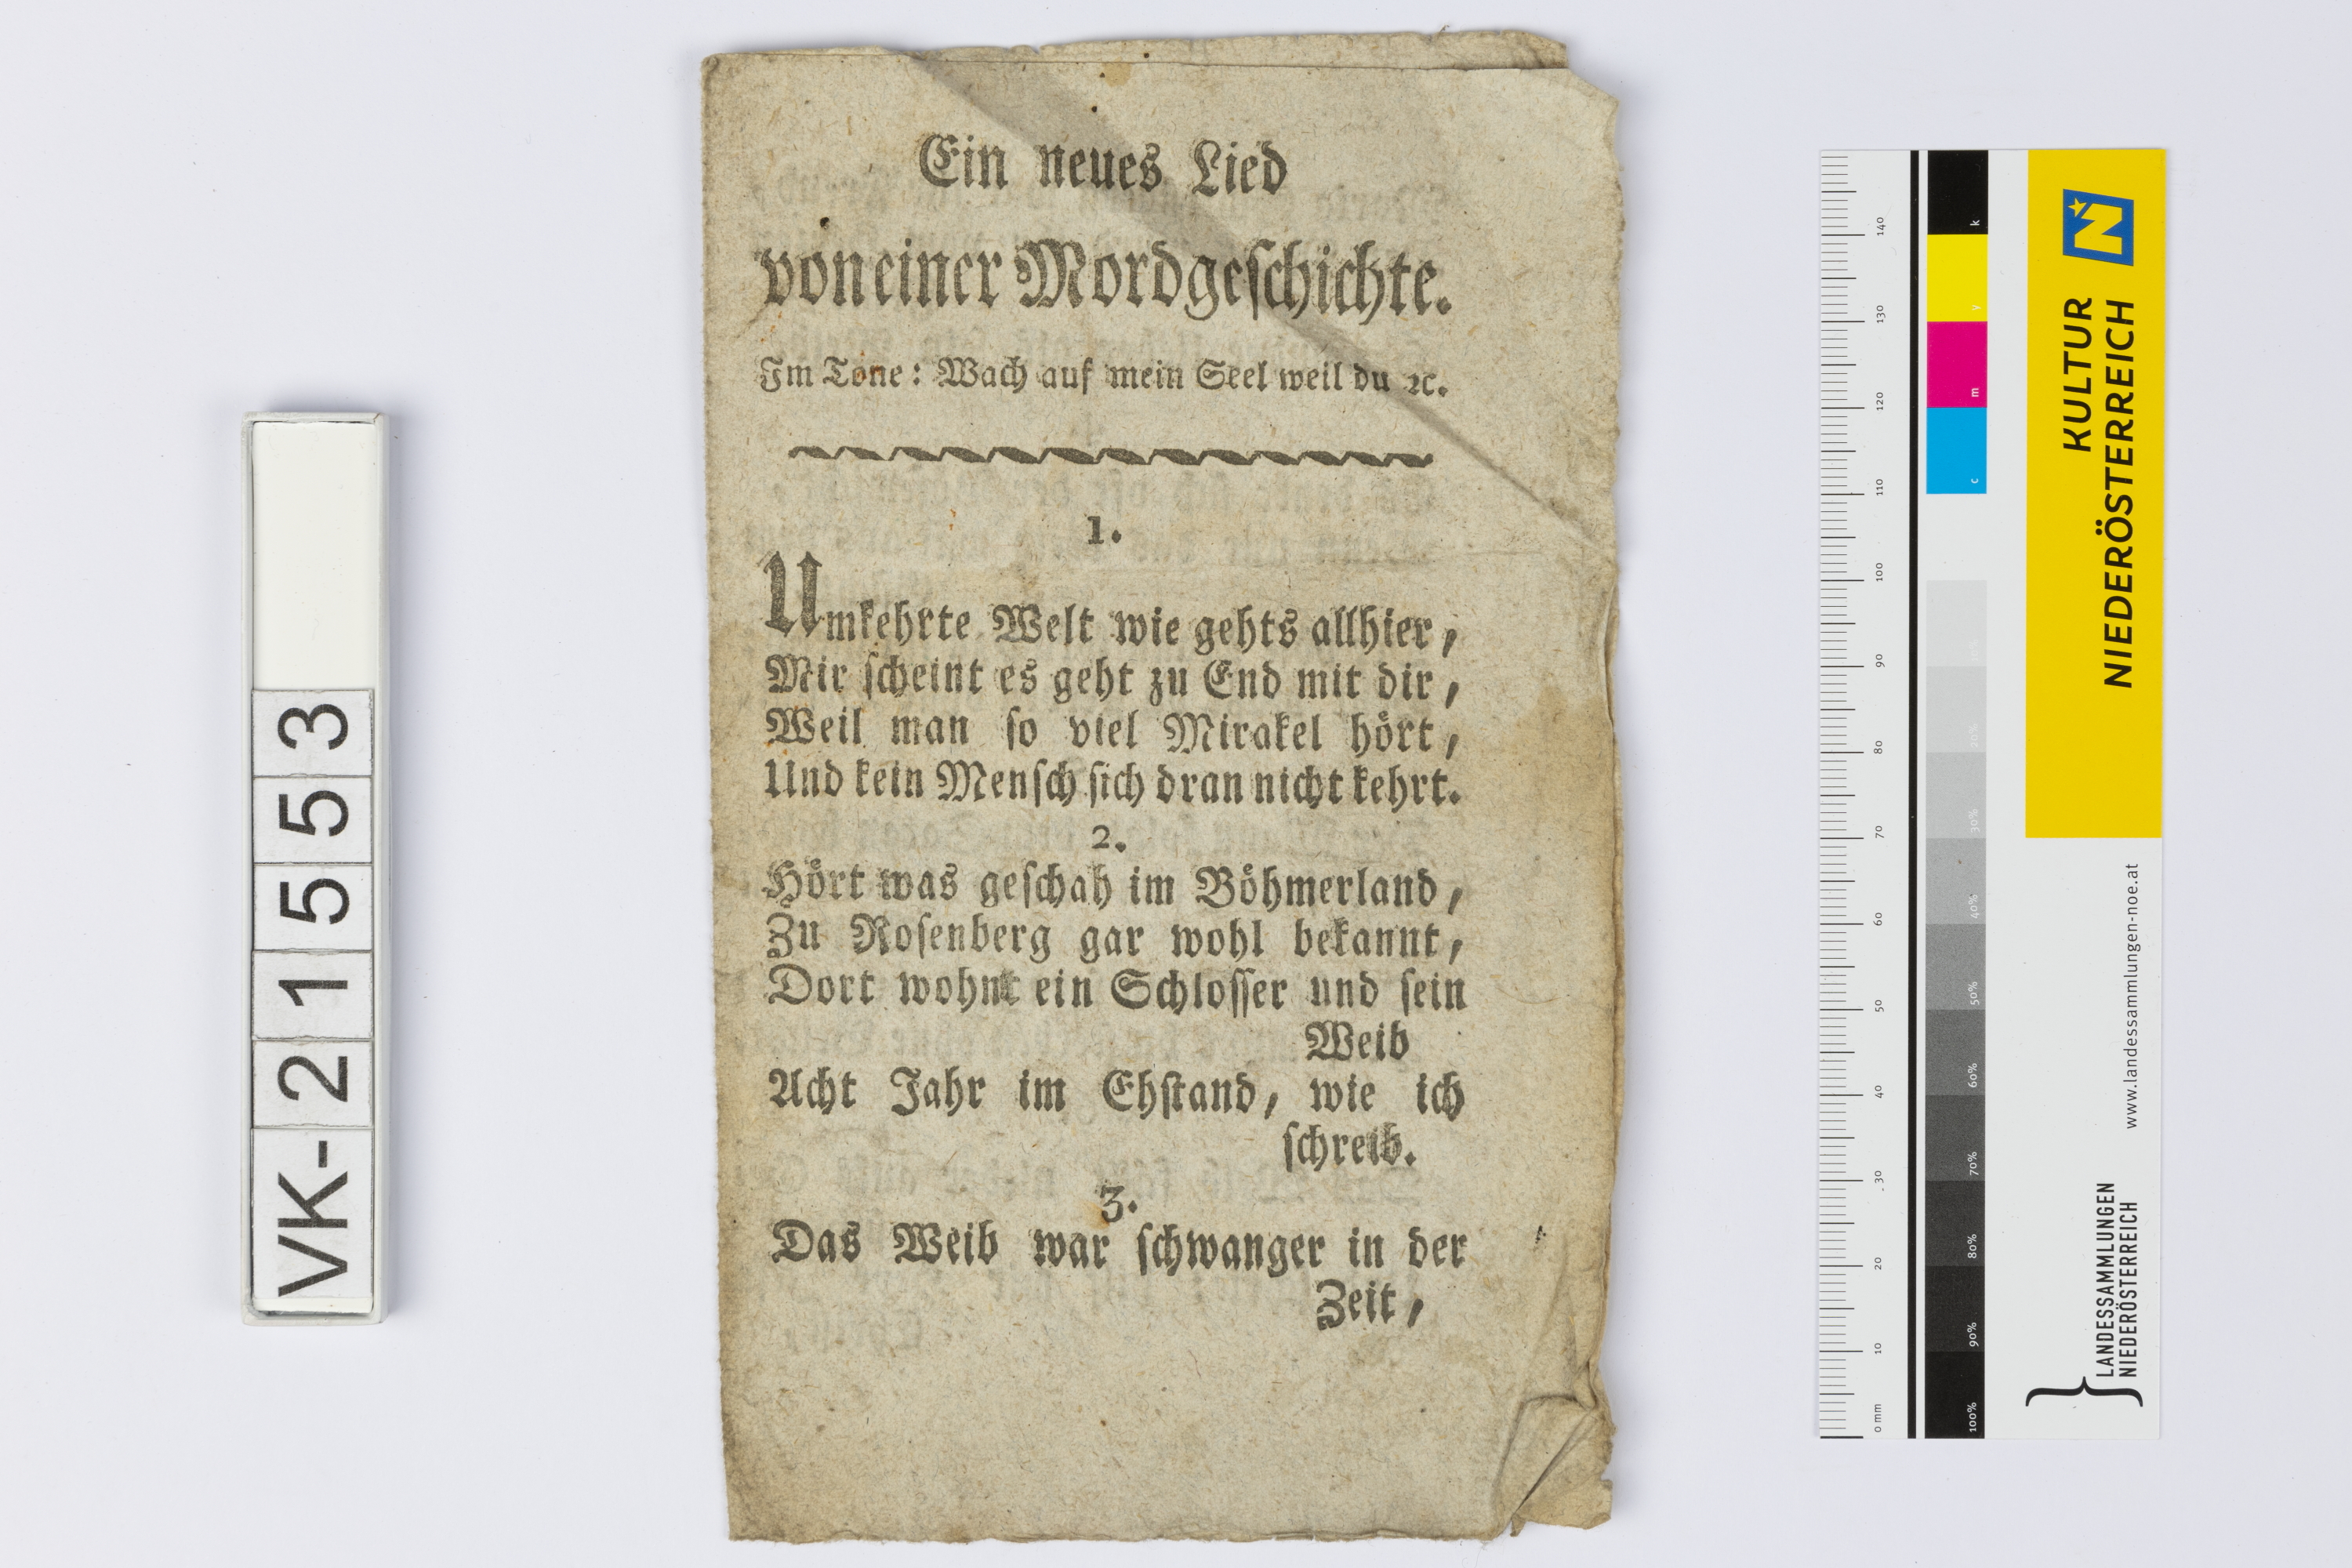 Ein neues Lied
von einer Mordgeschichte.
Im Tone: Wach auf mein Seel weil du ꝛc.
1.
Umkehrte Welt wie gehts allhier,
Mir scheint es geht zu End mit dir,
Weil man so viel Mirakel hört,
Und kein Mensch sich dran nicht kehrt.
2.
Hört was geschah im Böhmerland,
Zu Rosenberg gar wohl bekannt,
Dort wohnt ein Schlosser und sein
Weib
Acht Jahr im Ehstand, wie ich
schreib.
3.
Das Weib war schwanger in der
Zeit,
VK-21553
0 mm
10
20
30
40
50
60
70
80
90
100
110
120
130
140
k
y
m
c
10%
20%
30%
40%
50%
60%
70%
80%
90%
100%
KULTUR
NIEDERÖSTERREICH
N
www.landessammlungen-noe.at
LANDESSAMMLUNGEN
NIEDERÖSTERREICH